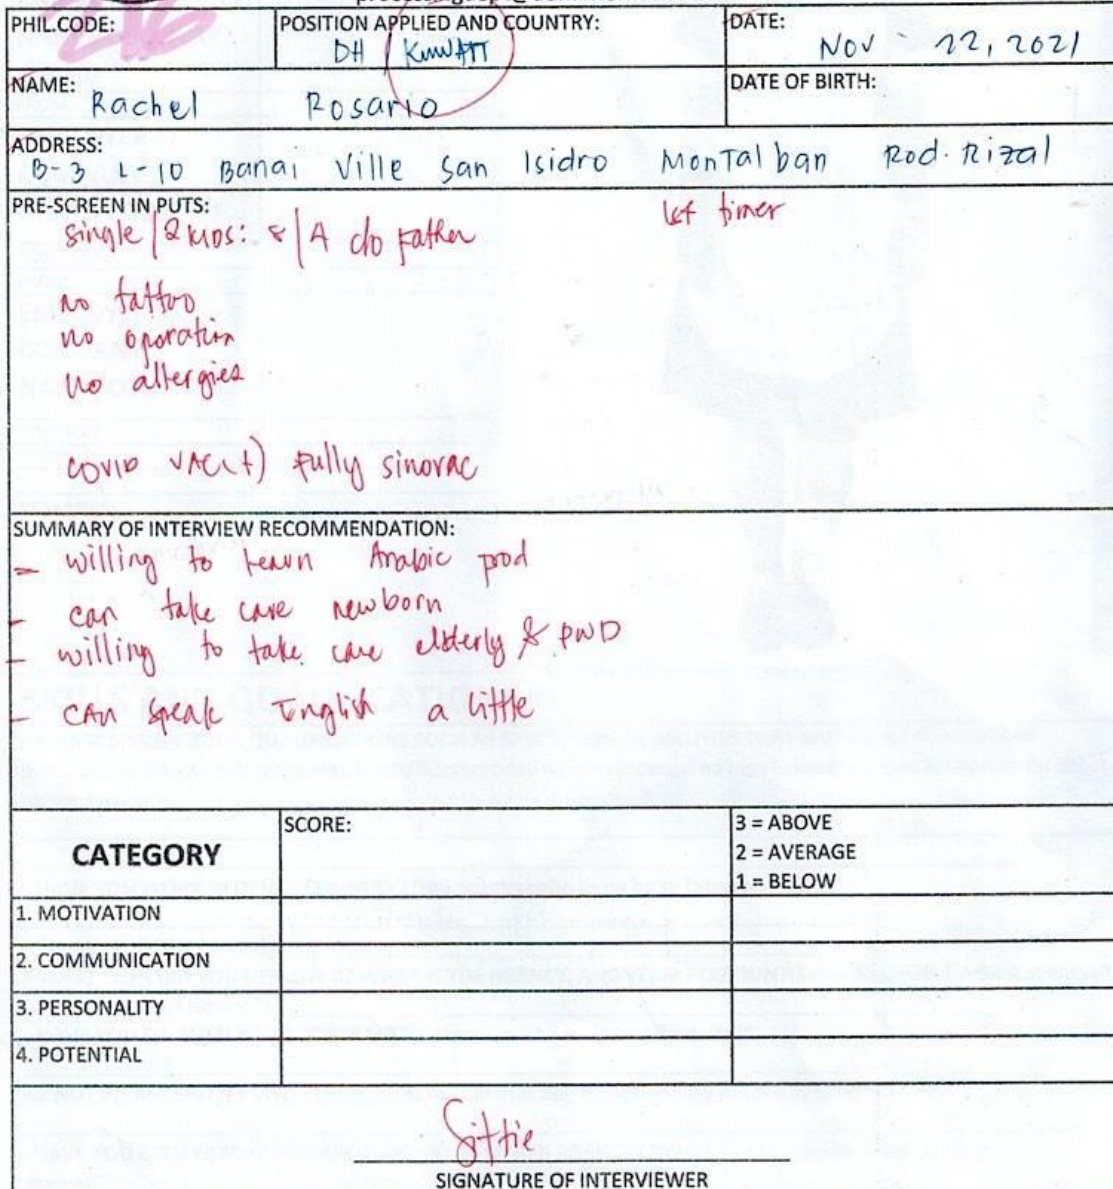 PHIL.CODE:
216
POSITION APPLIED AND COUNTRY:
DH / KUWAIT
DATE:
Nov - 22, 2021
NAME:
Rachel Rosario
DATE OF BIRTH:
ADDRESS:
B-3 L-10 Banai Ville San Isidro Montalban Rod. Rizal
PRE-SCREEN IN PUTS:
single / 2 kids: 8 / A c/o father
1st timer
no tattoo
no operation
no allergies
covid vacc(+) fully sinovac
SUMMARY OF INTERVIEW RECOMMENDATION:
- willing to learn Arabic food
- can take care newborn
- willing to take care elderly & PWD
- can speak English a little
CATEGORY
SCORE:
3 = ABOVE
2 = AVERAGE
1 = BELOW
1. MOTIVATION
2. COMMUNICATION
3. PERSONALITY
4. POTENTIAL
Sittie
SIGNATURE OF INTERVIEWER